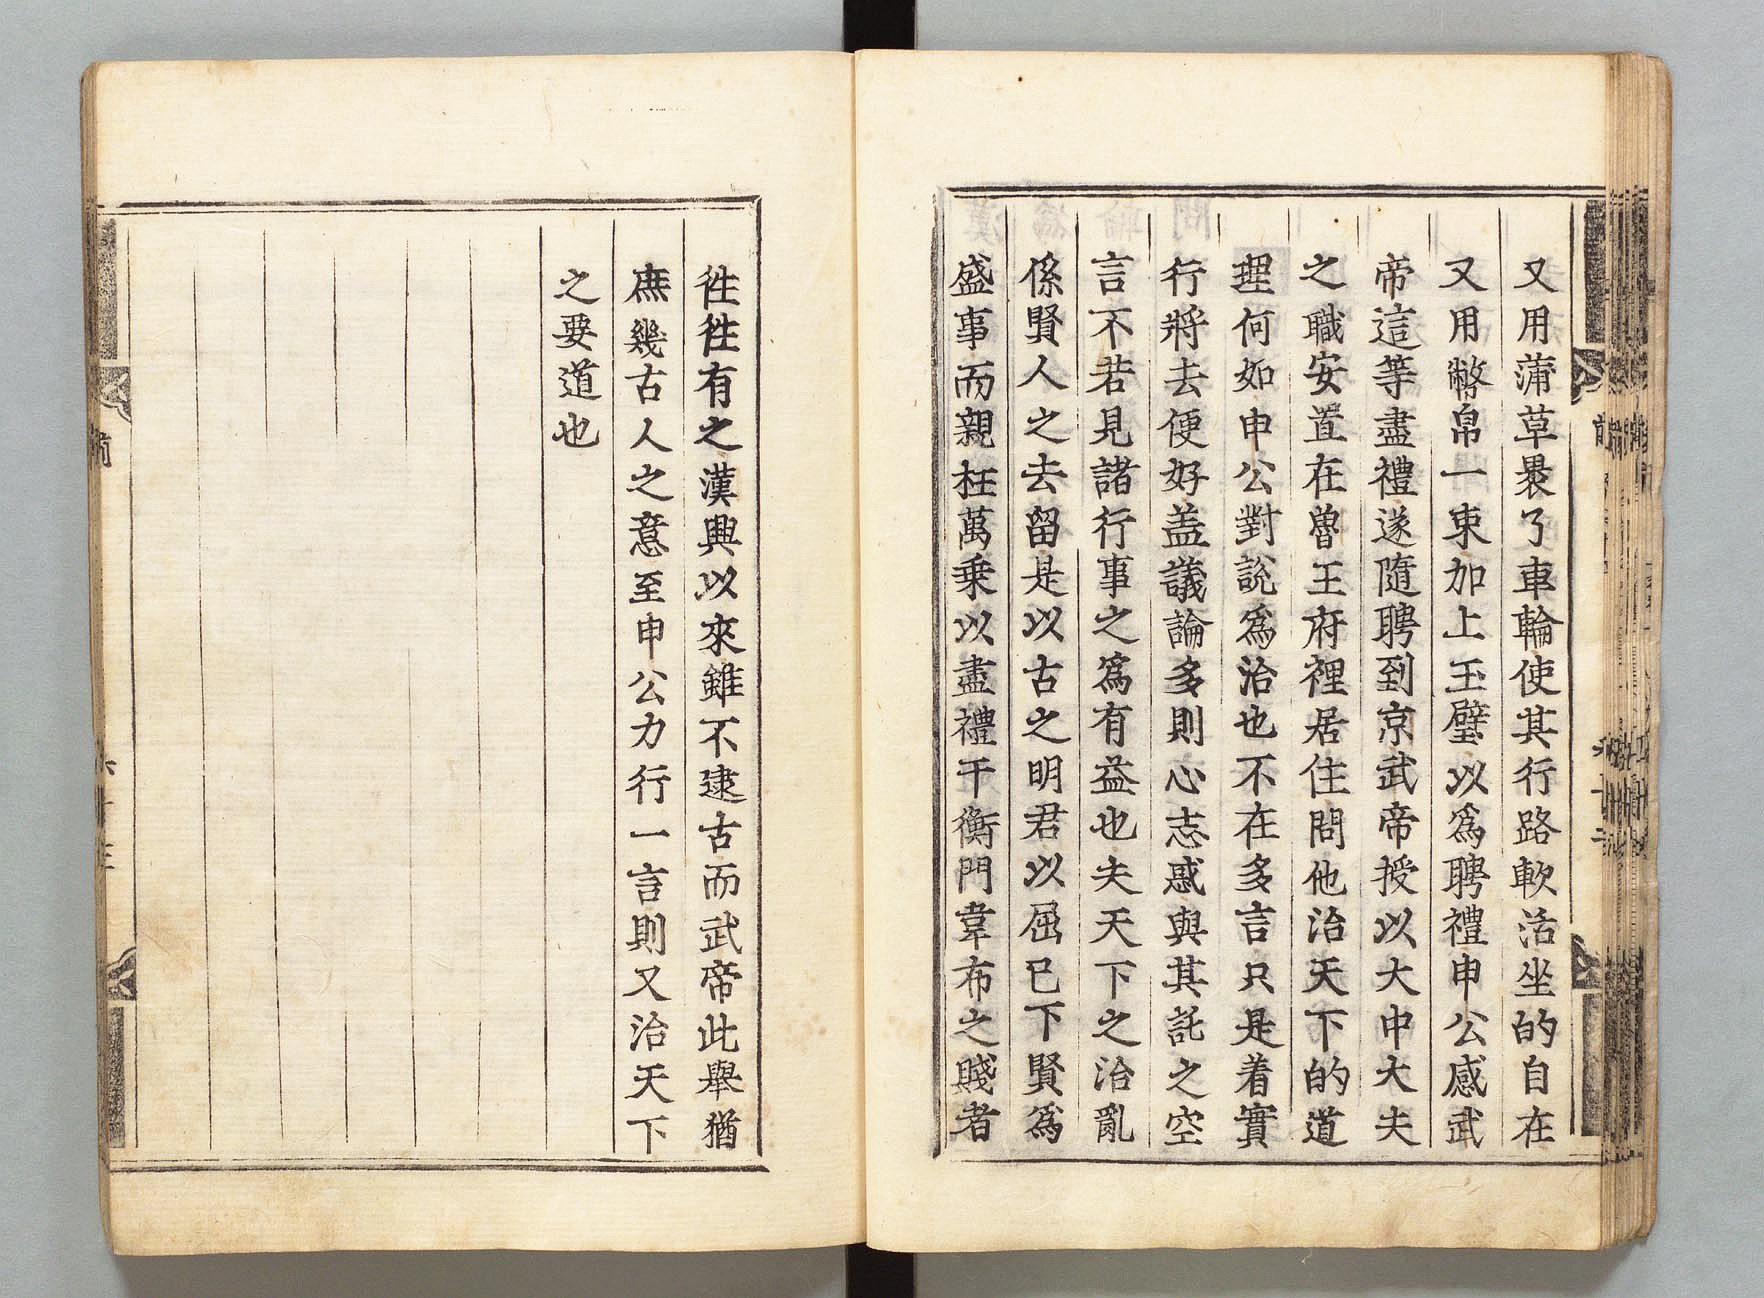 又用蒲草褁了車輪使其行路軟活坐的自在
又用幣帛一束加上玉璧以爲聘禮申公感武
帝這等盡禮遂隨聘到京武帝授以大中大夫
之職安置在魯王府裡居住問他治天下的道
理何如申公對說爲治也不在多言只是着實
行將去便好盖議論多則心志惑與其託之空
言不若見諸行事之爲有益也夫天下之治亂
係賢人之去留是以古之明君以屈已下賢爲
盛事而親枉萬乗以盡禮于衡門韋布之賤者
徃徃有之漢興以來雖不逮古而武帝此舉猶
庶幾古人之意至申公力行一言則又治天下
之要道也